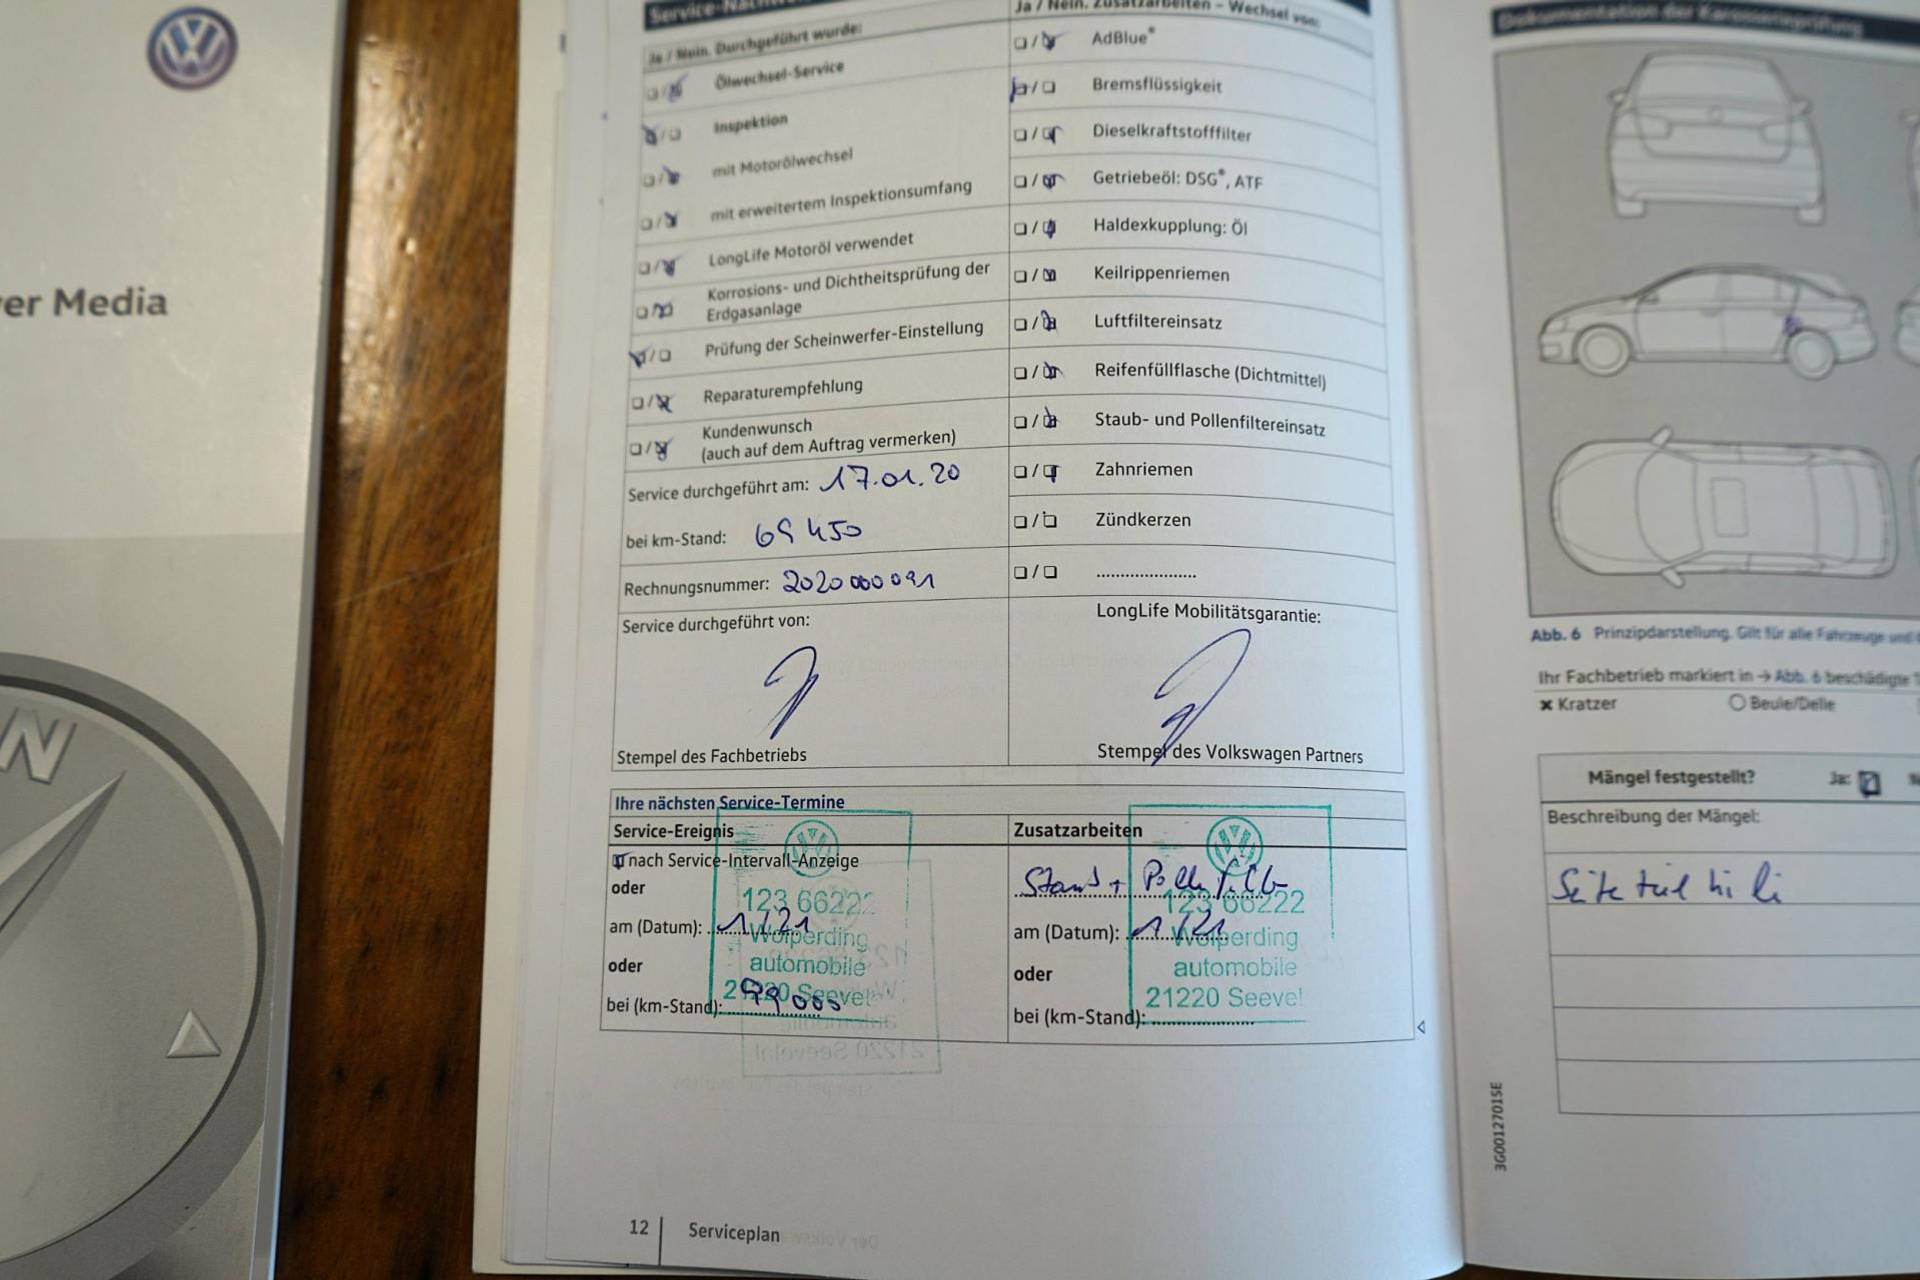 er Media
N
Ja / Nein. Durchgeführt wurde:
Ölwechsel-Service
Inspektion
mit Motorölwechsel
mit erweitertem Inspektionsumfang
LongLife Motoröl verwendet
Korrosions- und Dichtheitsprüfung der
Erdgasanlage
Prüfung der Scheinwerfer-Einstellung
Reparaturempfehlung
Kundenwunsch
(auch auf dem Auftrag vermerken)
Service durchgeführt am: 17.01.20
bei km-Stand: 69 450
Rechnungsnummer: 2020000091
Service durchgeführt von:
Stempel des Fachbetriebs
Ja / Nein. Zusatzarbeiten – Wechsel von:
AdBlue®
Bremsflüssigkeit
Dieselkraftstofffilter
Getriebeöl: DSG®, ATF
Haldexkupplung: Öl
Keilrippenriemen
Luftfiltereinsatz
Reifenfüllflasche (Dichtmittel)
Staub- und Pollenfiltereinsatz
Zahnriemen
Zündkerzen
.....................
LongLife Mobilitätsgarantie:
Stempel des Volkswagen Partners
Ihre nächsten Service-Termine
Service-Ereignis
nach Service-Intervall-Anzeige
oder
am (Datum): 1/21
oder
bei (km-Stand): 99000
123 66222
Wolperding
automobile
21220 Seevet
Zusatzarbeiten
am (Datum): 1/21
oder
bei (km-Stand):
123 66222
Wolperding
automobile
21220 Seevet
12 Serviceplan
Dokumentation der Karosserieprüfung
Abb. 6 Prinzipdarstellung. Gilt für alle Fahrzeuge und
Ihr Fachbetrieb markiert in → Abb. 6 beschädigte
× Kratzer
Beule/Delle
Mängel festgestellt? Ja:
Beschreibung der Mängel:
Seitenteil hi li
3G0012701SE